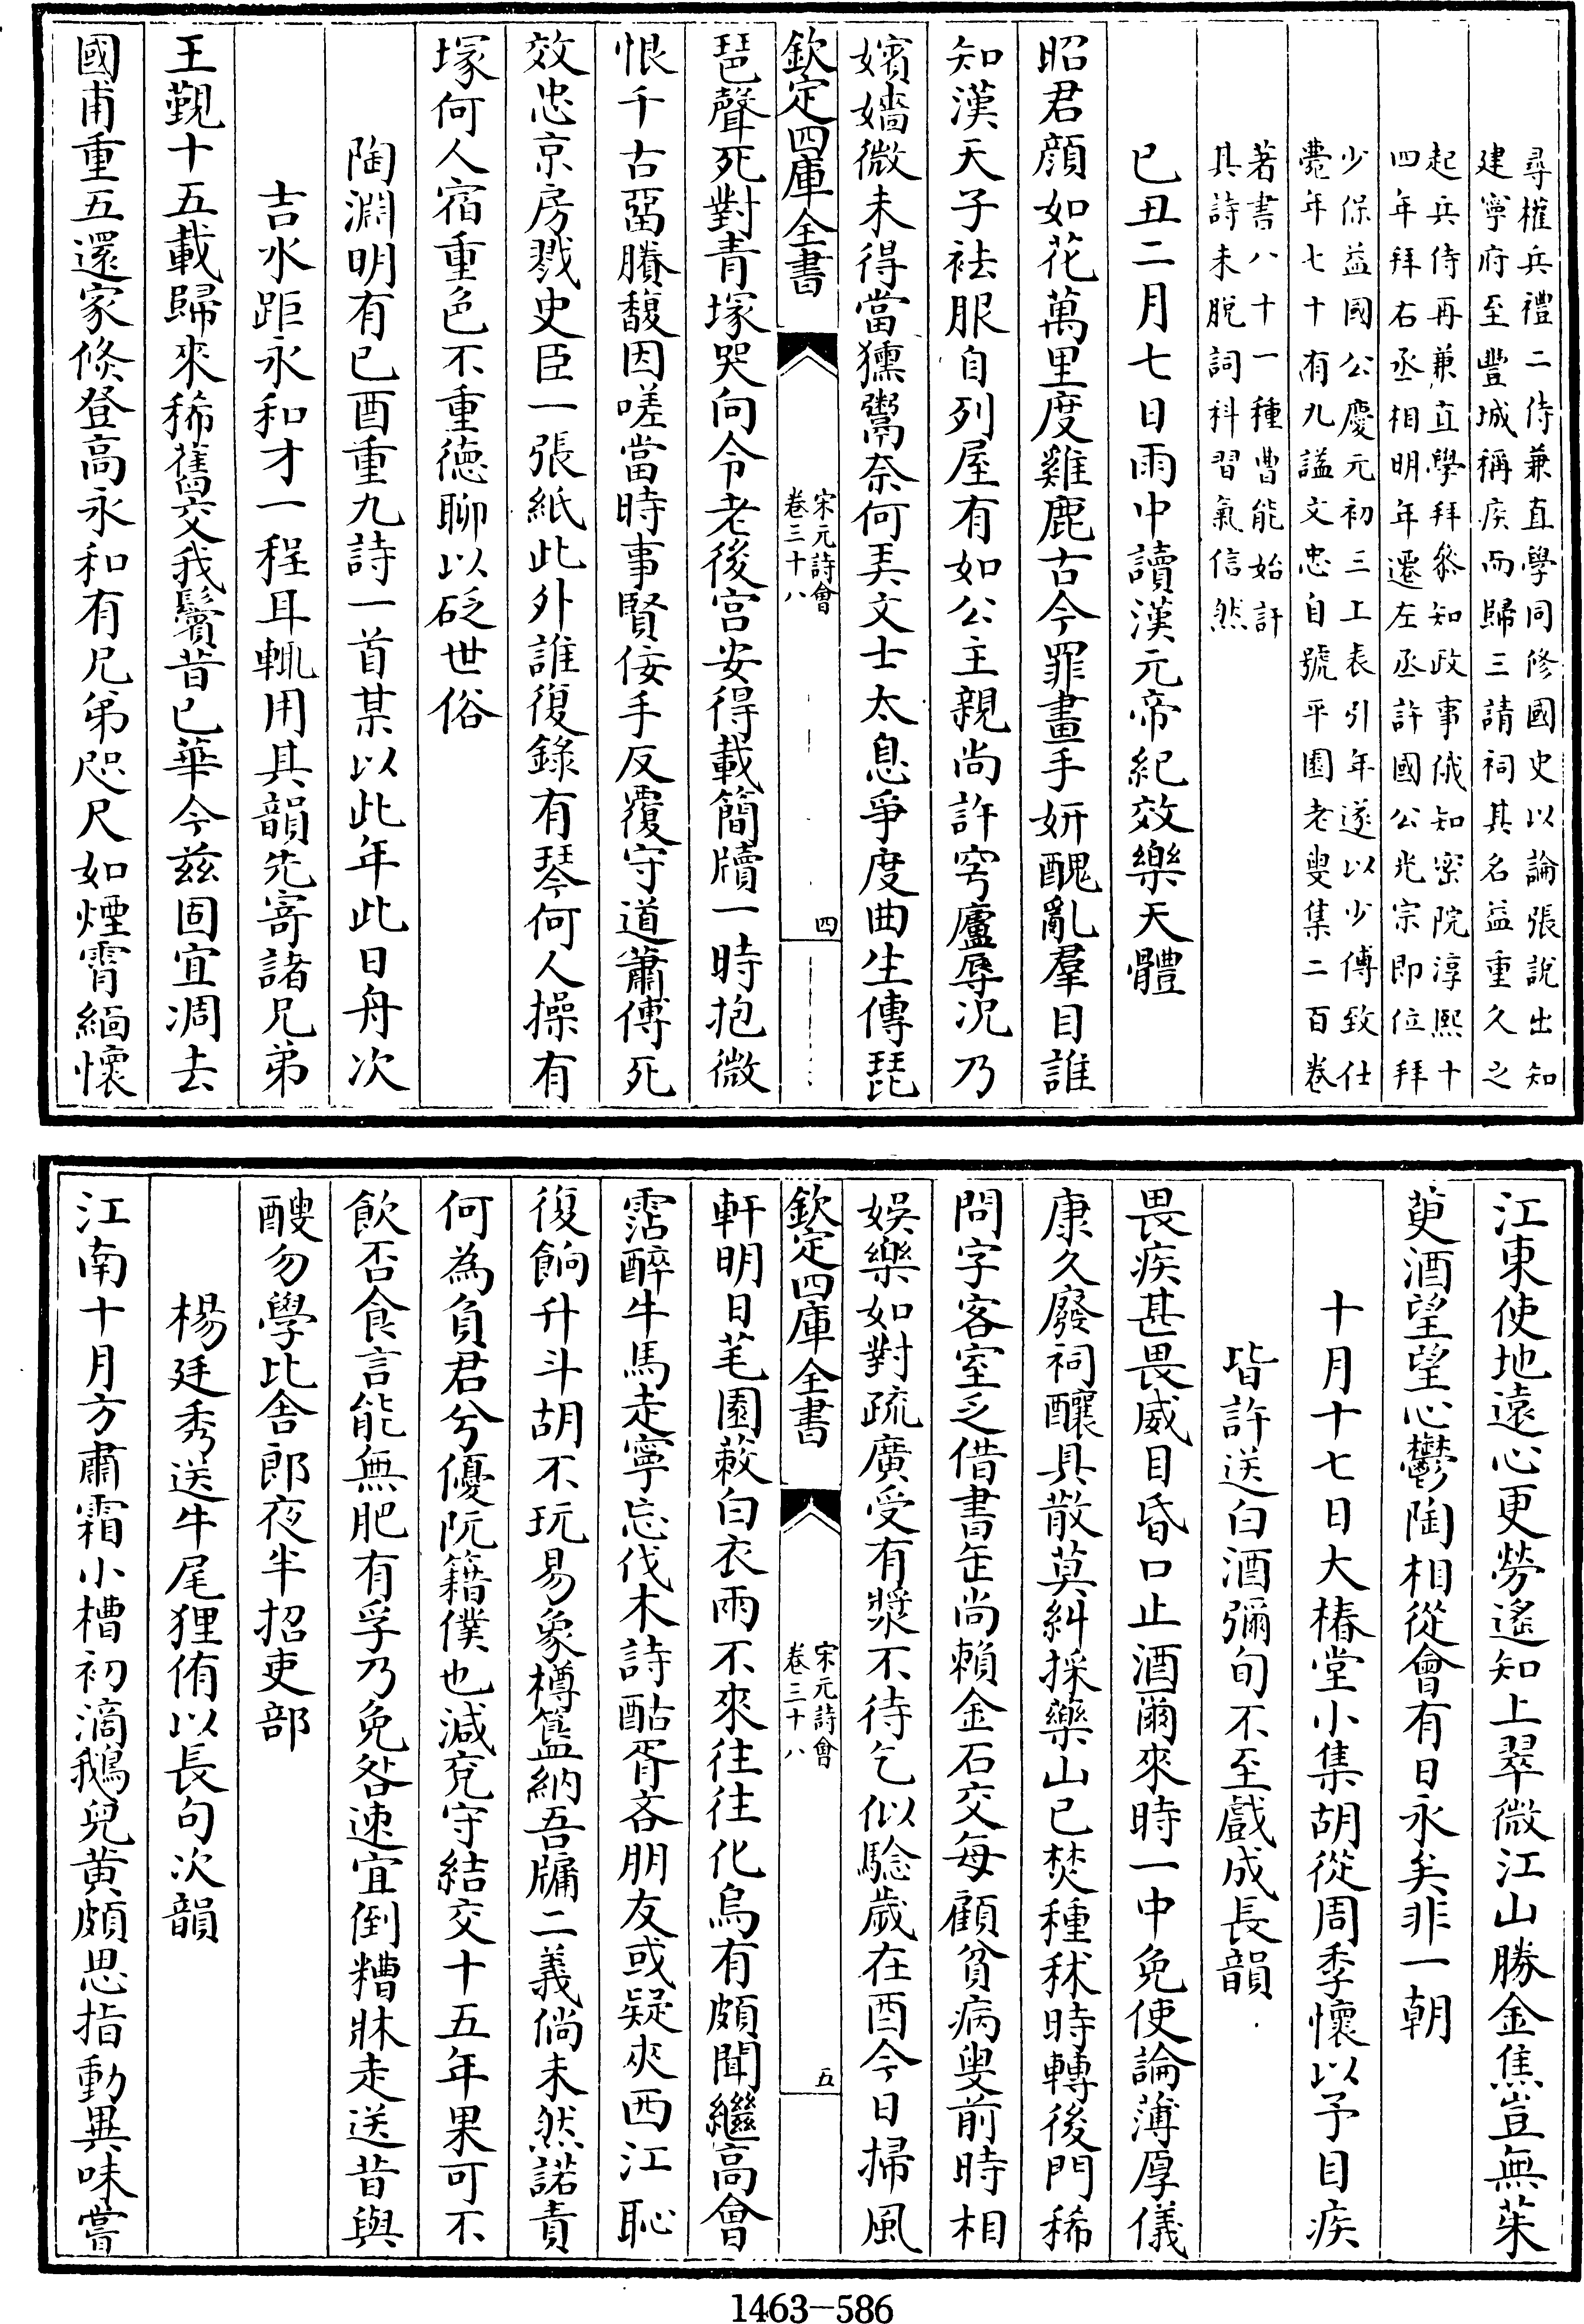 尋權兵禮二侍兼直學同修國史以論張說出知
建寧府至豐城稱疾而歸三請祠其名益重久之
起兵侍再兼直學拜叅知政事俄知密院淳熙十
四年拜右丞相明年遷左丞許國公光宗即位拜
少保益國公慶元初三上表引年遂以少傅致仕
薨年七十有九謚文忠自號平園老叟集二百卷
著書八十一種曹能始訐
其詩未脱詞科習氣信然
己丑二月七日雨中讀漢元帝紀效樂天體
昭君顔如花萬里度雞鹿古今罪畫手妍醜亂羣目誰
知漢天子袪服自列屋有如公主親尚許穹廬辱况乃
嬪嬙微未得當獯鬻奈何弄文士太息爭度曲生傳琵
欽定四庫全書
宋元詩會
卷三十八
四
琶聲死對青塚哭向令老後宫安得載簡牘一時抱微
恨千古罶賸馥因嗟當時事賢佞手反覆守道蕭傅死
效忠京房戮史臣一張紙此外誰復錄有琴何人操有
塚何人宿重色不重德聊以砭世俗
陶淵明有己酉重九詩一首某以此年此日舟次
吉水距永和才一程耳輒用其韻先寄諸兄弟
王觀十五載歸來稀舊交我鬢昔已華今兹固宜凋去
國甫重五還家倏登高永和有兄弟咫尺如煙霄緬懷
江東使地遠心更勞遙知上翠微江山勝金焦豈無茱
萸酒望望心鬱陶相從會有日永矣非一朝
十月十七日大椿堂小集胡從周季懷以予目疾
皆許送白酒彌旬不至戲成長韻
畏疾甚畏威目昏口止酒爾來時一中免使論薄厚儀
康久廢祠釀具散莫糾採藥山已焚種秫時轉後門稀
問字客室乏借書缶尚賴金石交每顧貧病叟前時相
娛樂如對疏廣受有漿不待乞似驗歲在酉今日掃風
欽定四庫全書
宋元詩會
卷三十八
五
軒明日芼園蔌白衣雨不來往往化烏有頗聞繼高會
霑醉牛馬走寧忘伐木詩酤胥吝朋友或疑夾西江恥
復餉升斗胡不玩易象樽簋納吾牖二義倘未然諾責
何為負君兮優阮籍僕也減兖守結交十五年果可不
飲否食言能無肥有孚乃免咎速宜倒糟牀走送昔與
醙勿學比舍郎夜半招吏部
楊廷秀送牛尾狸侑以長句次韻
江南十月方肅霜小槽初滴鵝兒黄頗思指動異味嘗
1463—586